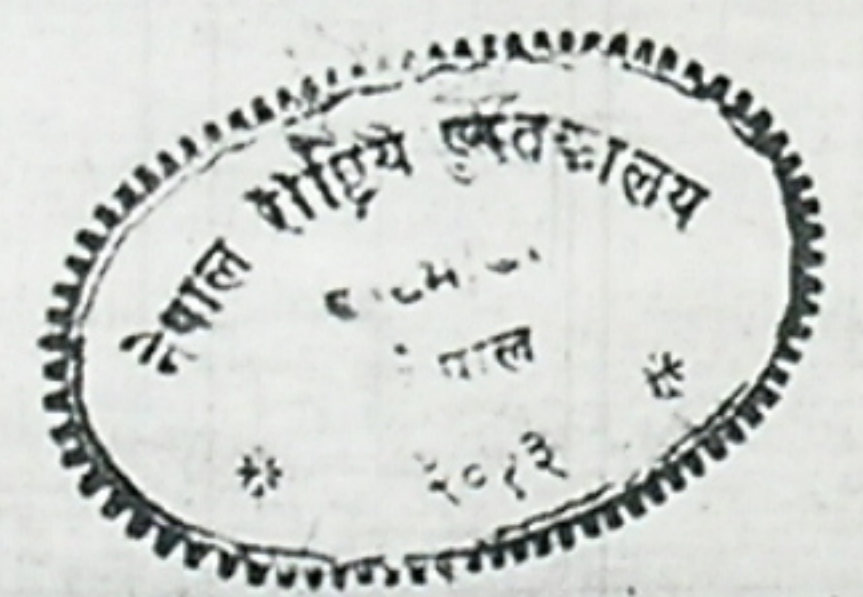 नेपाल राष्ट्रिय पुस्तकालय
नेपाल
२०१३